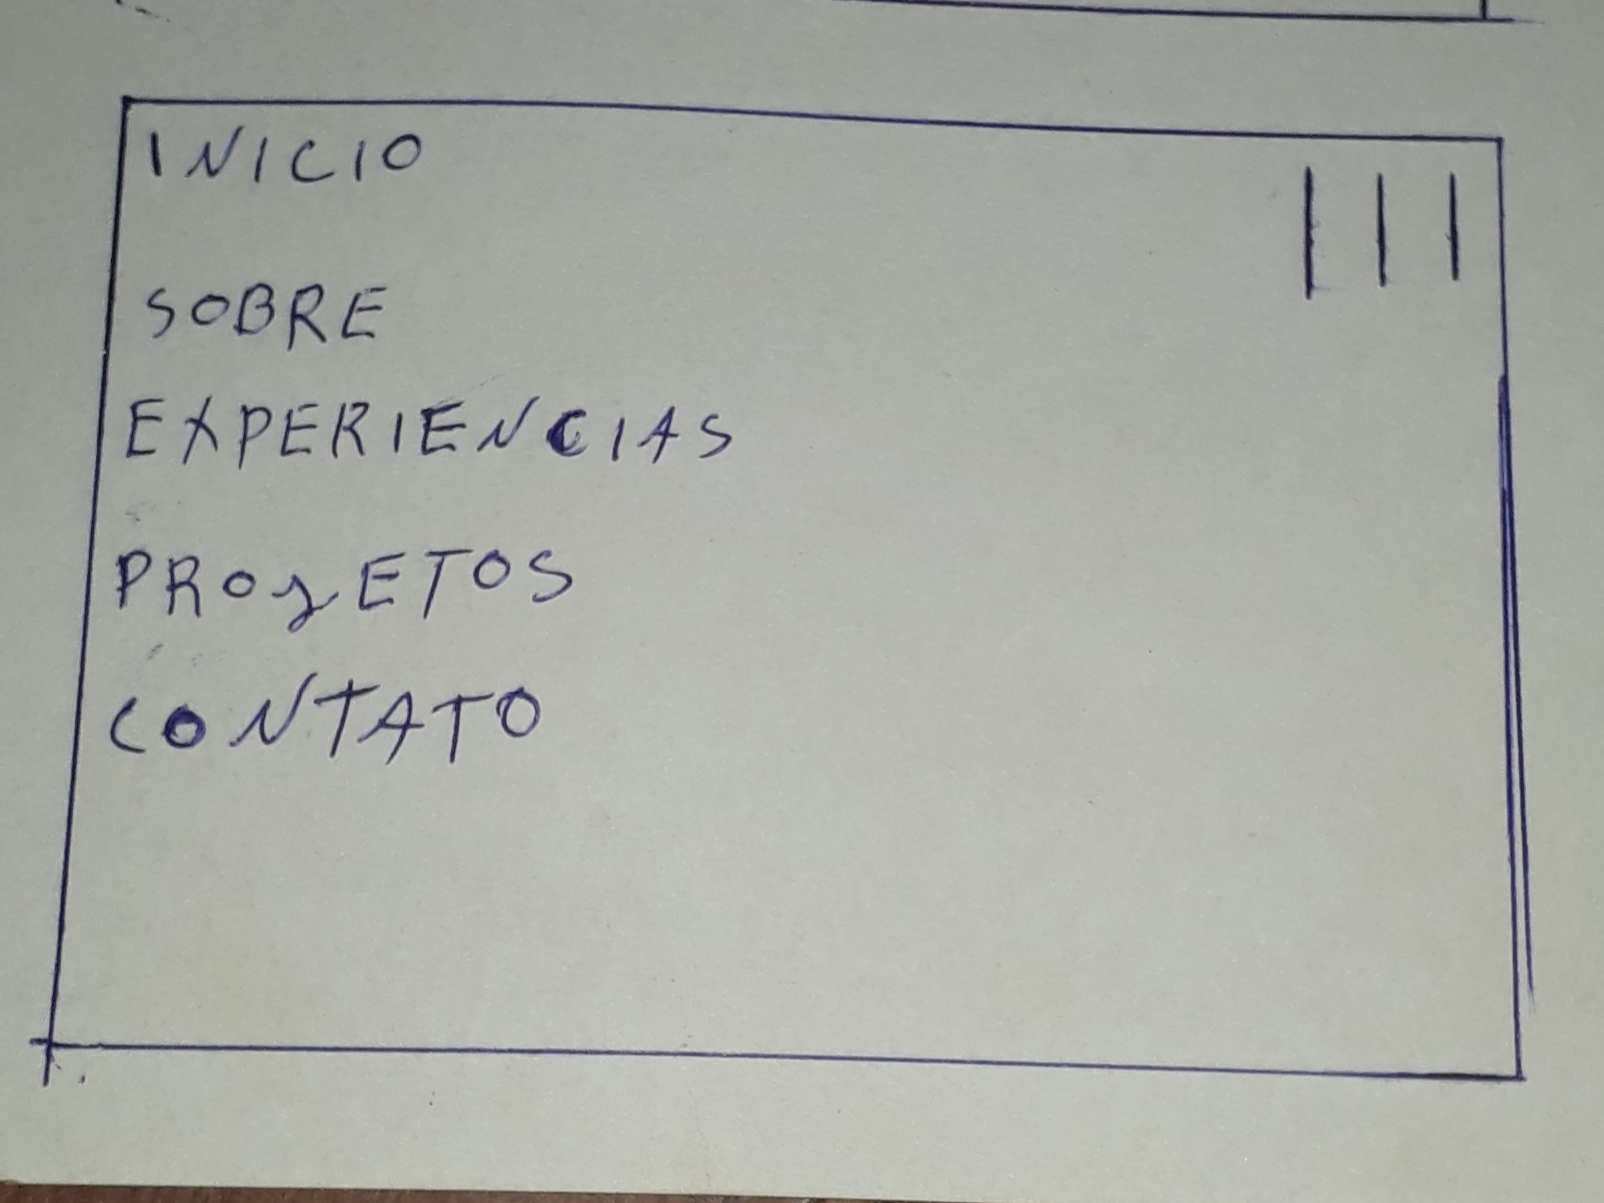 INICIO
SOBRE
EXPERIENCIAS
PROJETOS
CONTATO